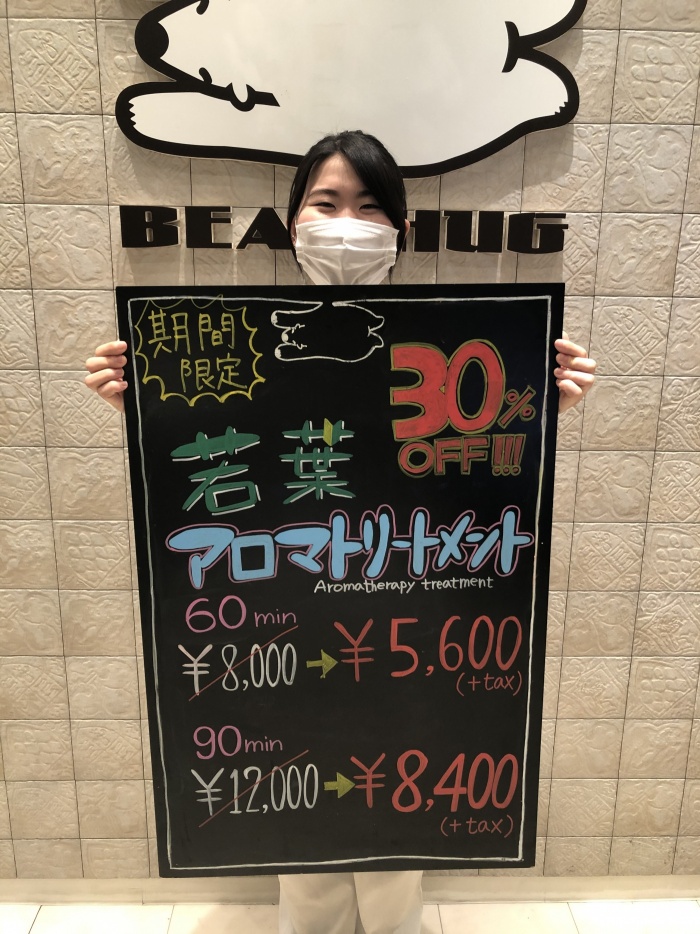 BEAR HUG
期間
限定
30%
OFF!!!
若葉
アロマトリートメント
Aromatherapy treatment
60min
¥8,000→¥5,600
(+tax)
90min
¥12,000→¥8,400
(+tax)